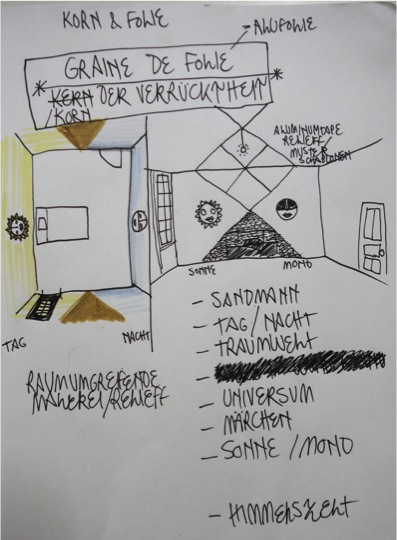 KORN & FOLIE
- ALUFOLIE
GRAINE DE FOLIE
* KERN DER VERRÜCKTHEIT *
/KORN
ALUMINIUMTAPE
RELIEFF/
MUSTER
SCHABLONEN
SONNE
MOND
TAG
NACHT
RAUMUMGREIFENDE
MALEREI/RELIEFF
- SANDMANN
- TAG/NACHT
- TRAUMWELT
- UNIVERSUM
- MÄRCHEN
- SONNE/MOND
- HIMMELSZELT